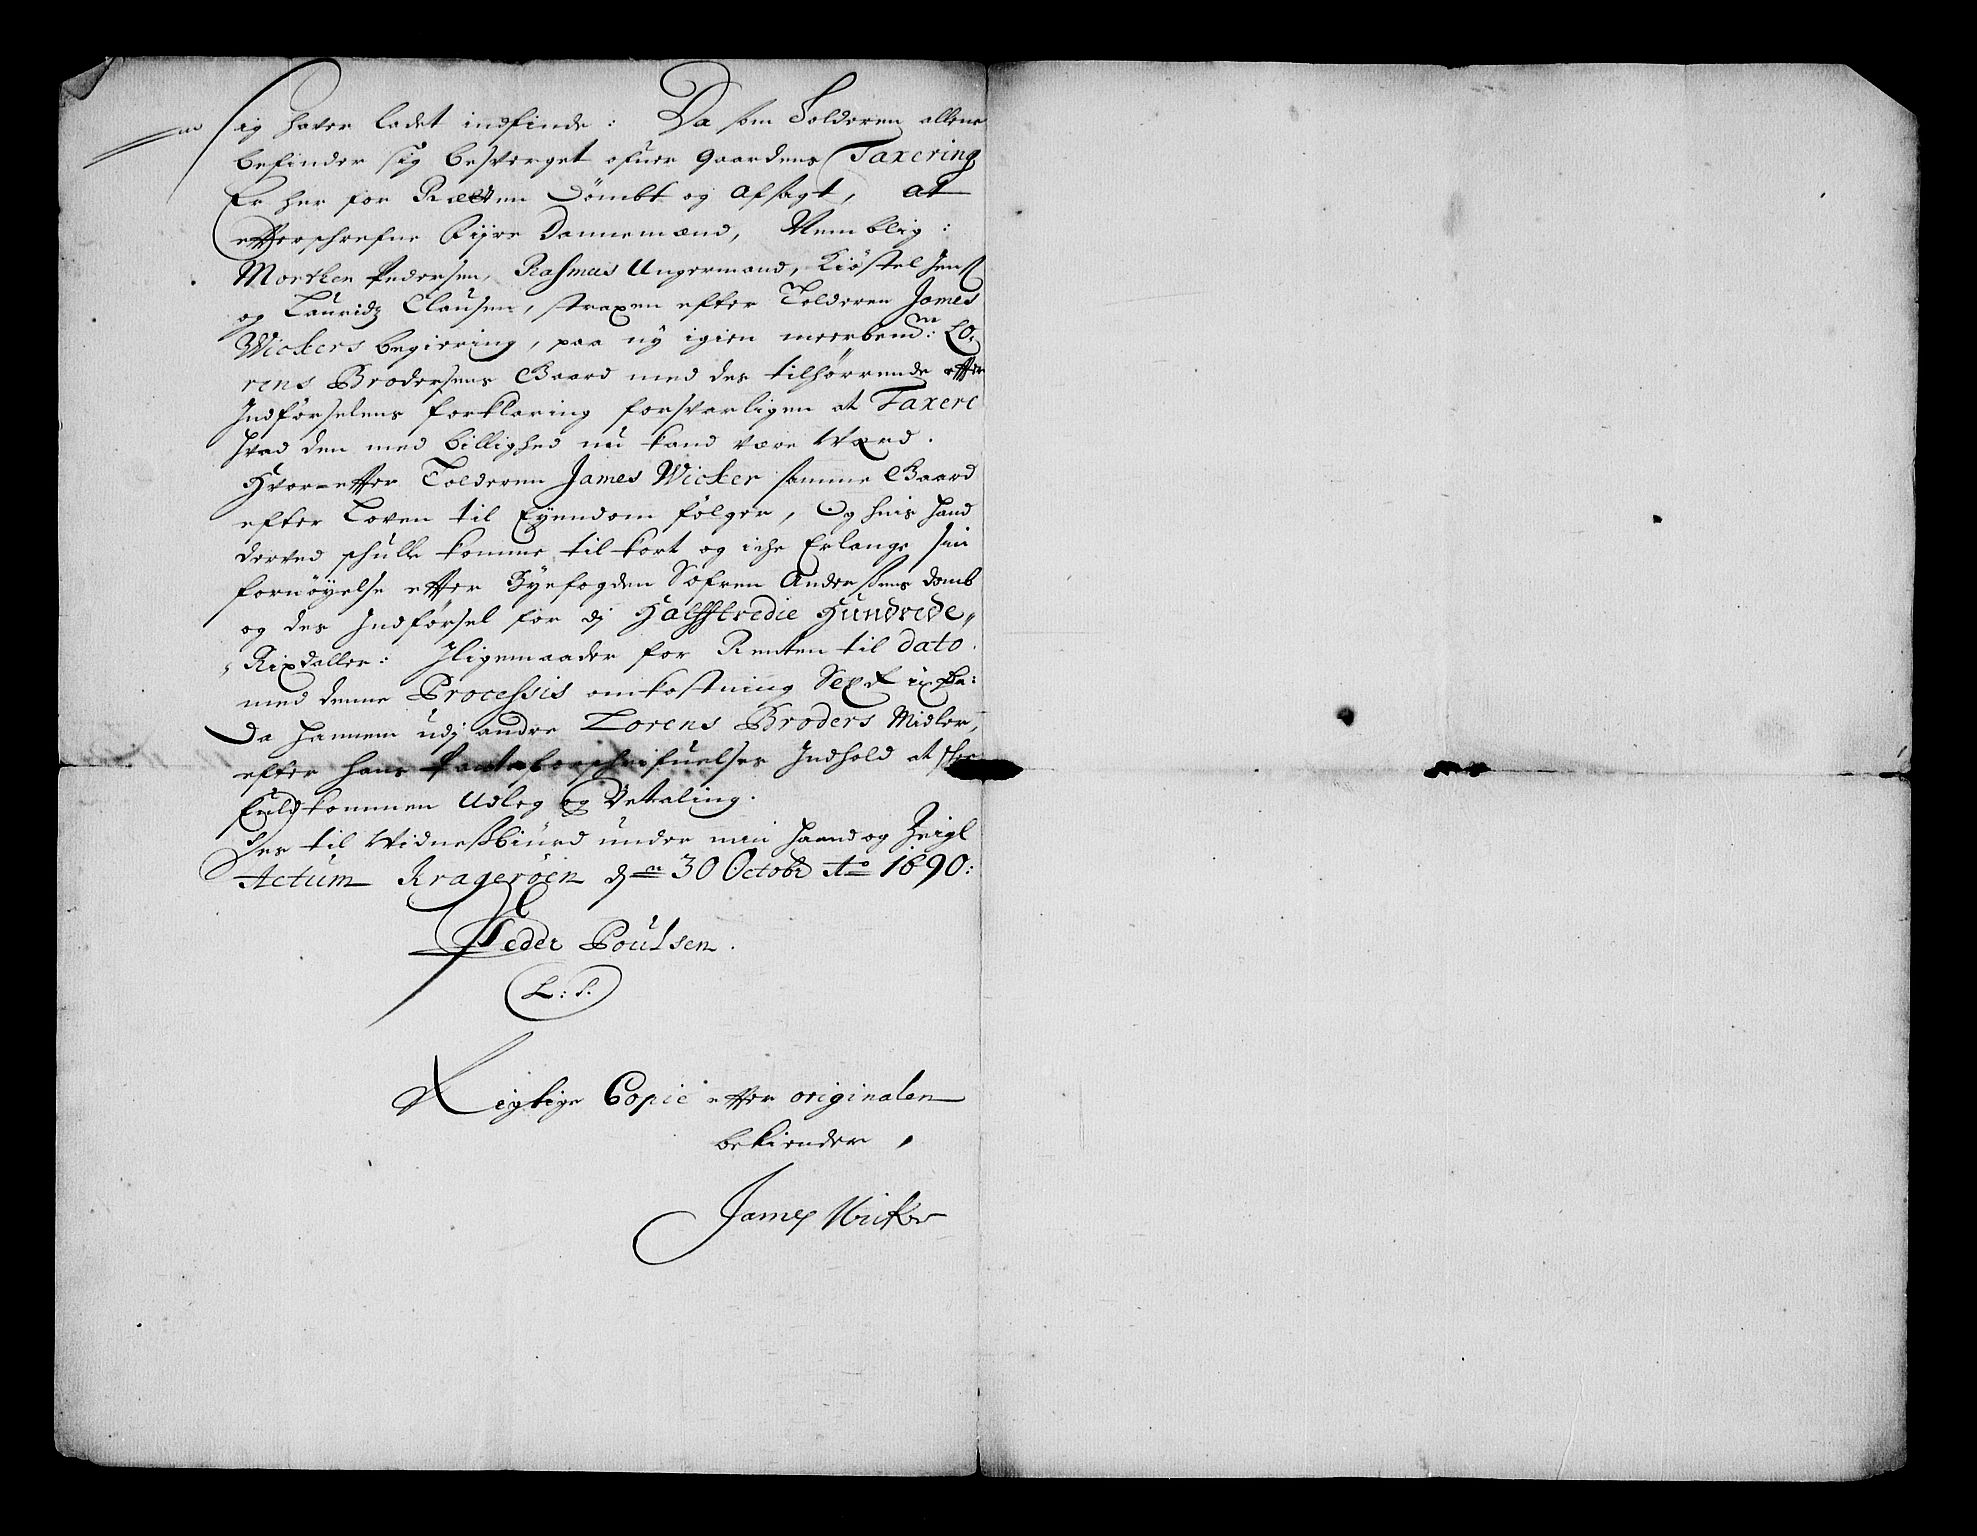 sig hafver ladet indfinde: Da som Tolderen allene
befinder sig besverget ofuer gaardens Taxering
Er her for Rætten dømbt og afsagt, at
efferschrefne fijre Dannemænd, Nemblig:
Morthen Pedersen, Rasmus Ungermand, Kiøstel Jenß
og Lauridz Clausen, straxen efter Tolderen James
Wickers begiering, paa ny igien meerbemte: Lo-
rens Brodersens Gaard med des tilhørrende effter
Indførselens forklaring forsvarligen at Taxere
hvad den med billighed nu kand være Værd.
Hvor-effter Tolderen James Wicker samme Gaard
efter Loven til Eyendom følger, Og huis hand
derved schulle komme til kort og iche Erlange sin
fornøyelse effter Byefogden Søfren Anderßens domb
og des Indførsel for di Halfftredie Hundrede
Rixdaller: Iligemaader for Renten til dato
med denne Processis omkostning Sex
Da hannem udj andre Lorens Broders Midler,
efter hans Indhold at schee
fuldkommen Udleg og Betaling.
Des til Vidneßbiurd under min haand og Zeigl
Actum Kragerøen den 30 Octobr Ao 1690:
Peder Poulsen.
L: S.
Rigtige Copie effter originalen
bekiender,
James Wicker